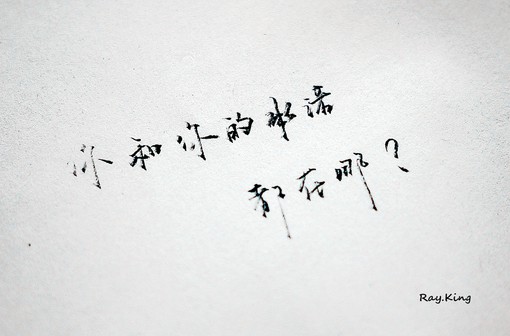 你和你的承诺
都在哪?
Ray.King